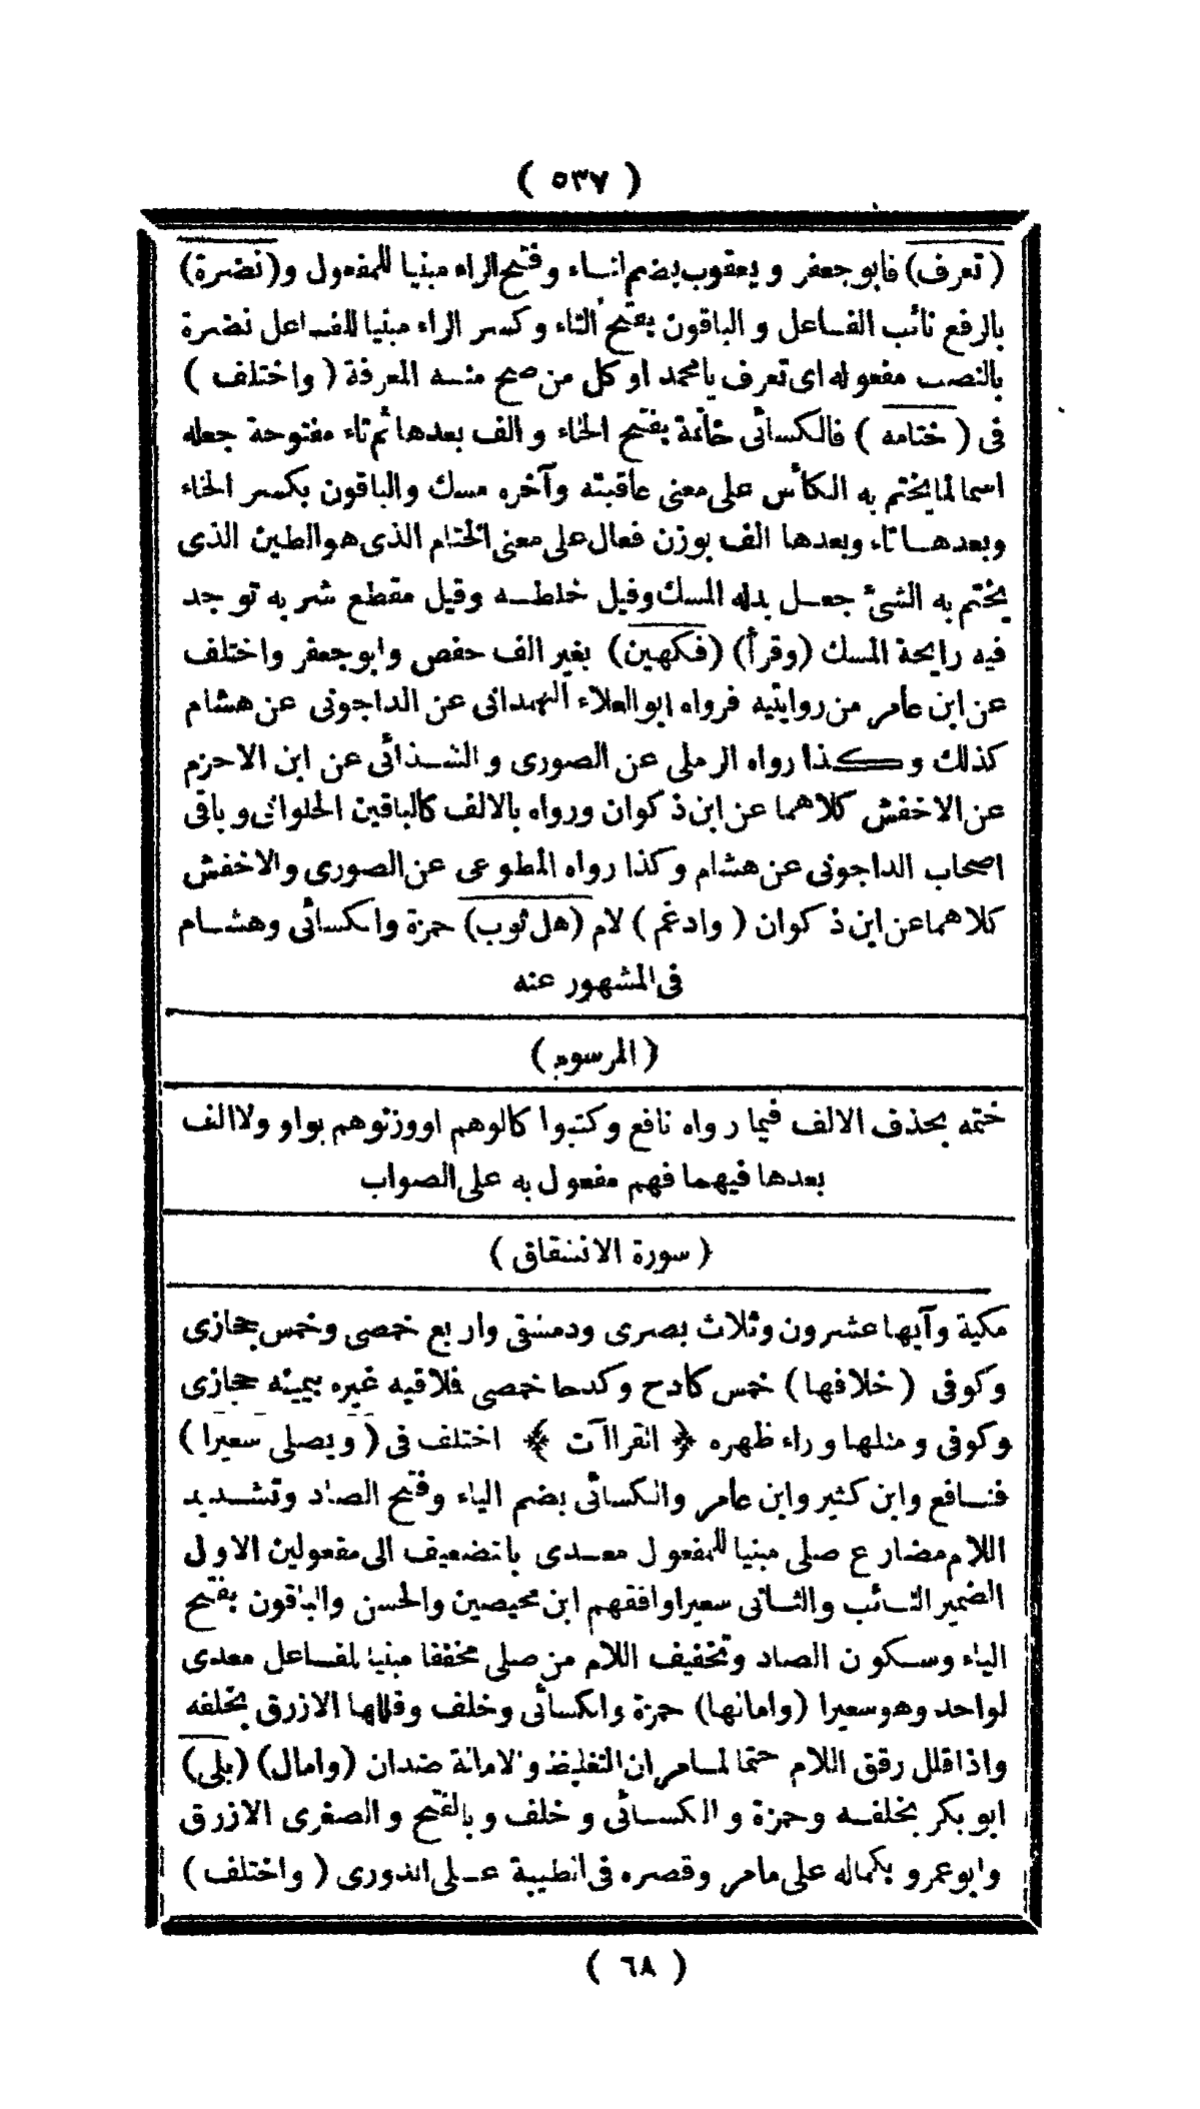 ( ٥٣٧ )
( تعرف ) فابو جعفر و يعقوب بضم التاء و فتح الراء مبنيا للمفعول و ( نضرة )
بالرفع نائب الفاعل و الباقون بفتح التاء و كسر الراء مبنيا للفاعل نضرة
بالنصب مفعوله اى تعرف يا محمد او كل من صح منه المعرفة ( واختلف )
فى ( ختامه ) فالكسائى خاتمة بفتح الخاء و الف بعدها ثم تاء مفتوحة جعله
اسما لما يختم به الكأس على معنى عاقبته وآخره مسك والباقون بكسر الخاء
وبعدها تاء وبعدها الف بوزن فعال على معنى الختام الذى هو الطين الذى
يختم به الشئ جعل بدله المسك وقيل خلطه وقيل مقطع شربه توجد
فيه رايحة المسك (وقرأ) (فكهين) بغير الف حفص وابو جعفر واختلف
عن ابن عامر من روايتيه فرواه ابو العلاء الهمدانى عن الداجونى عن هشام
كذلك وكذا رواه الرملى عن الصورى و الشذائى عن ابن الاحزم
عن الاخفش كلاهما عن ابن ذكوان ورواه بالالف كالباقين الحلوانى و باقى
اصحاب الداجونى عن هشام وكذا رواه المطوعى عن الصورى والاخفش
كلاهما عن ابن ذكوان ( وادغم ) لام (هل ثوب) حمزة والكسائى وهشام
فى المشهور عنه
( المرسوم )
ختمه بحذف الالف فيما رواه نافع وكتبوا كالوهم او وزنوهم بواو ولا الف
بعدها فيهما فهم مفعول به على الصواب
( سورة الانشقاق )
مكية وآيها عشرون وثلاث بصرى ودمشقى واربع حمصى وخمس حجازى
وكوفى ( خلافها ) خمس كادح وكدحا حمصى فلاقيه غيره بيمينه حجازى
وكوفى ومثلها وراء ظهره ﴿ القراآت ﴾ اختلف فى ( ويصلى سعيرا )
فنافع وابن كثير وابن عامر والكسائى بضم الياء وفتح الصاد وتشديد
اللام مضارع صلى مبنيا للمفعول معدى بالتضعيف الى مفعولين الاول
الضمير النائب والثانى سعيرا وافقهم ابن محيصين والحسن والباقون بفتح
الياء وسكون الصاد وتخفيف اللام من صلى مخففا مبنيا للفاعل معدى
لواحد وهو سعيرا (وامالها) حمزة والكسائى وخلف وقللها الازرق بخلفه
واذا قلل رقق اللام حتما لما مر ان التغليظ والامالة ضدان (وامال) (بلى)
ابو بكر بخلفه وحمزة و الكسائى و خلف و بالفتح و الصغرى الازرق
وابو عمرو بكماله على ما مر وقصره فى الطيبة على الدورى ( واختلف )
( ٦٨ )